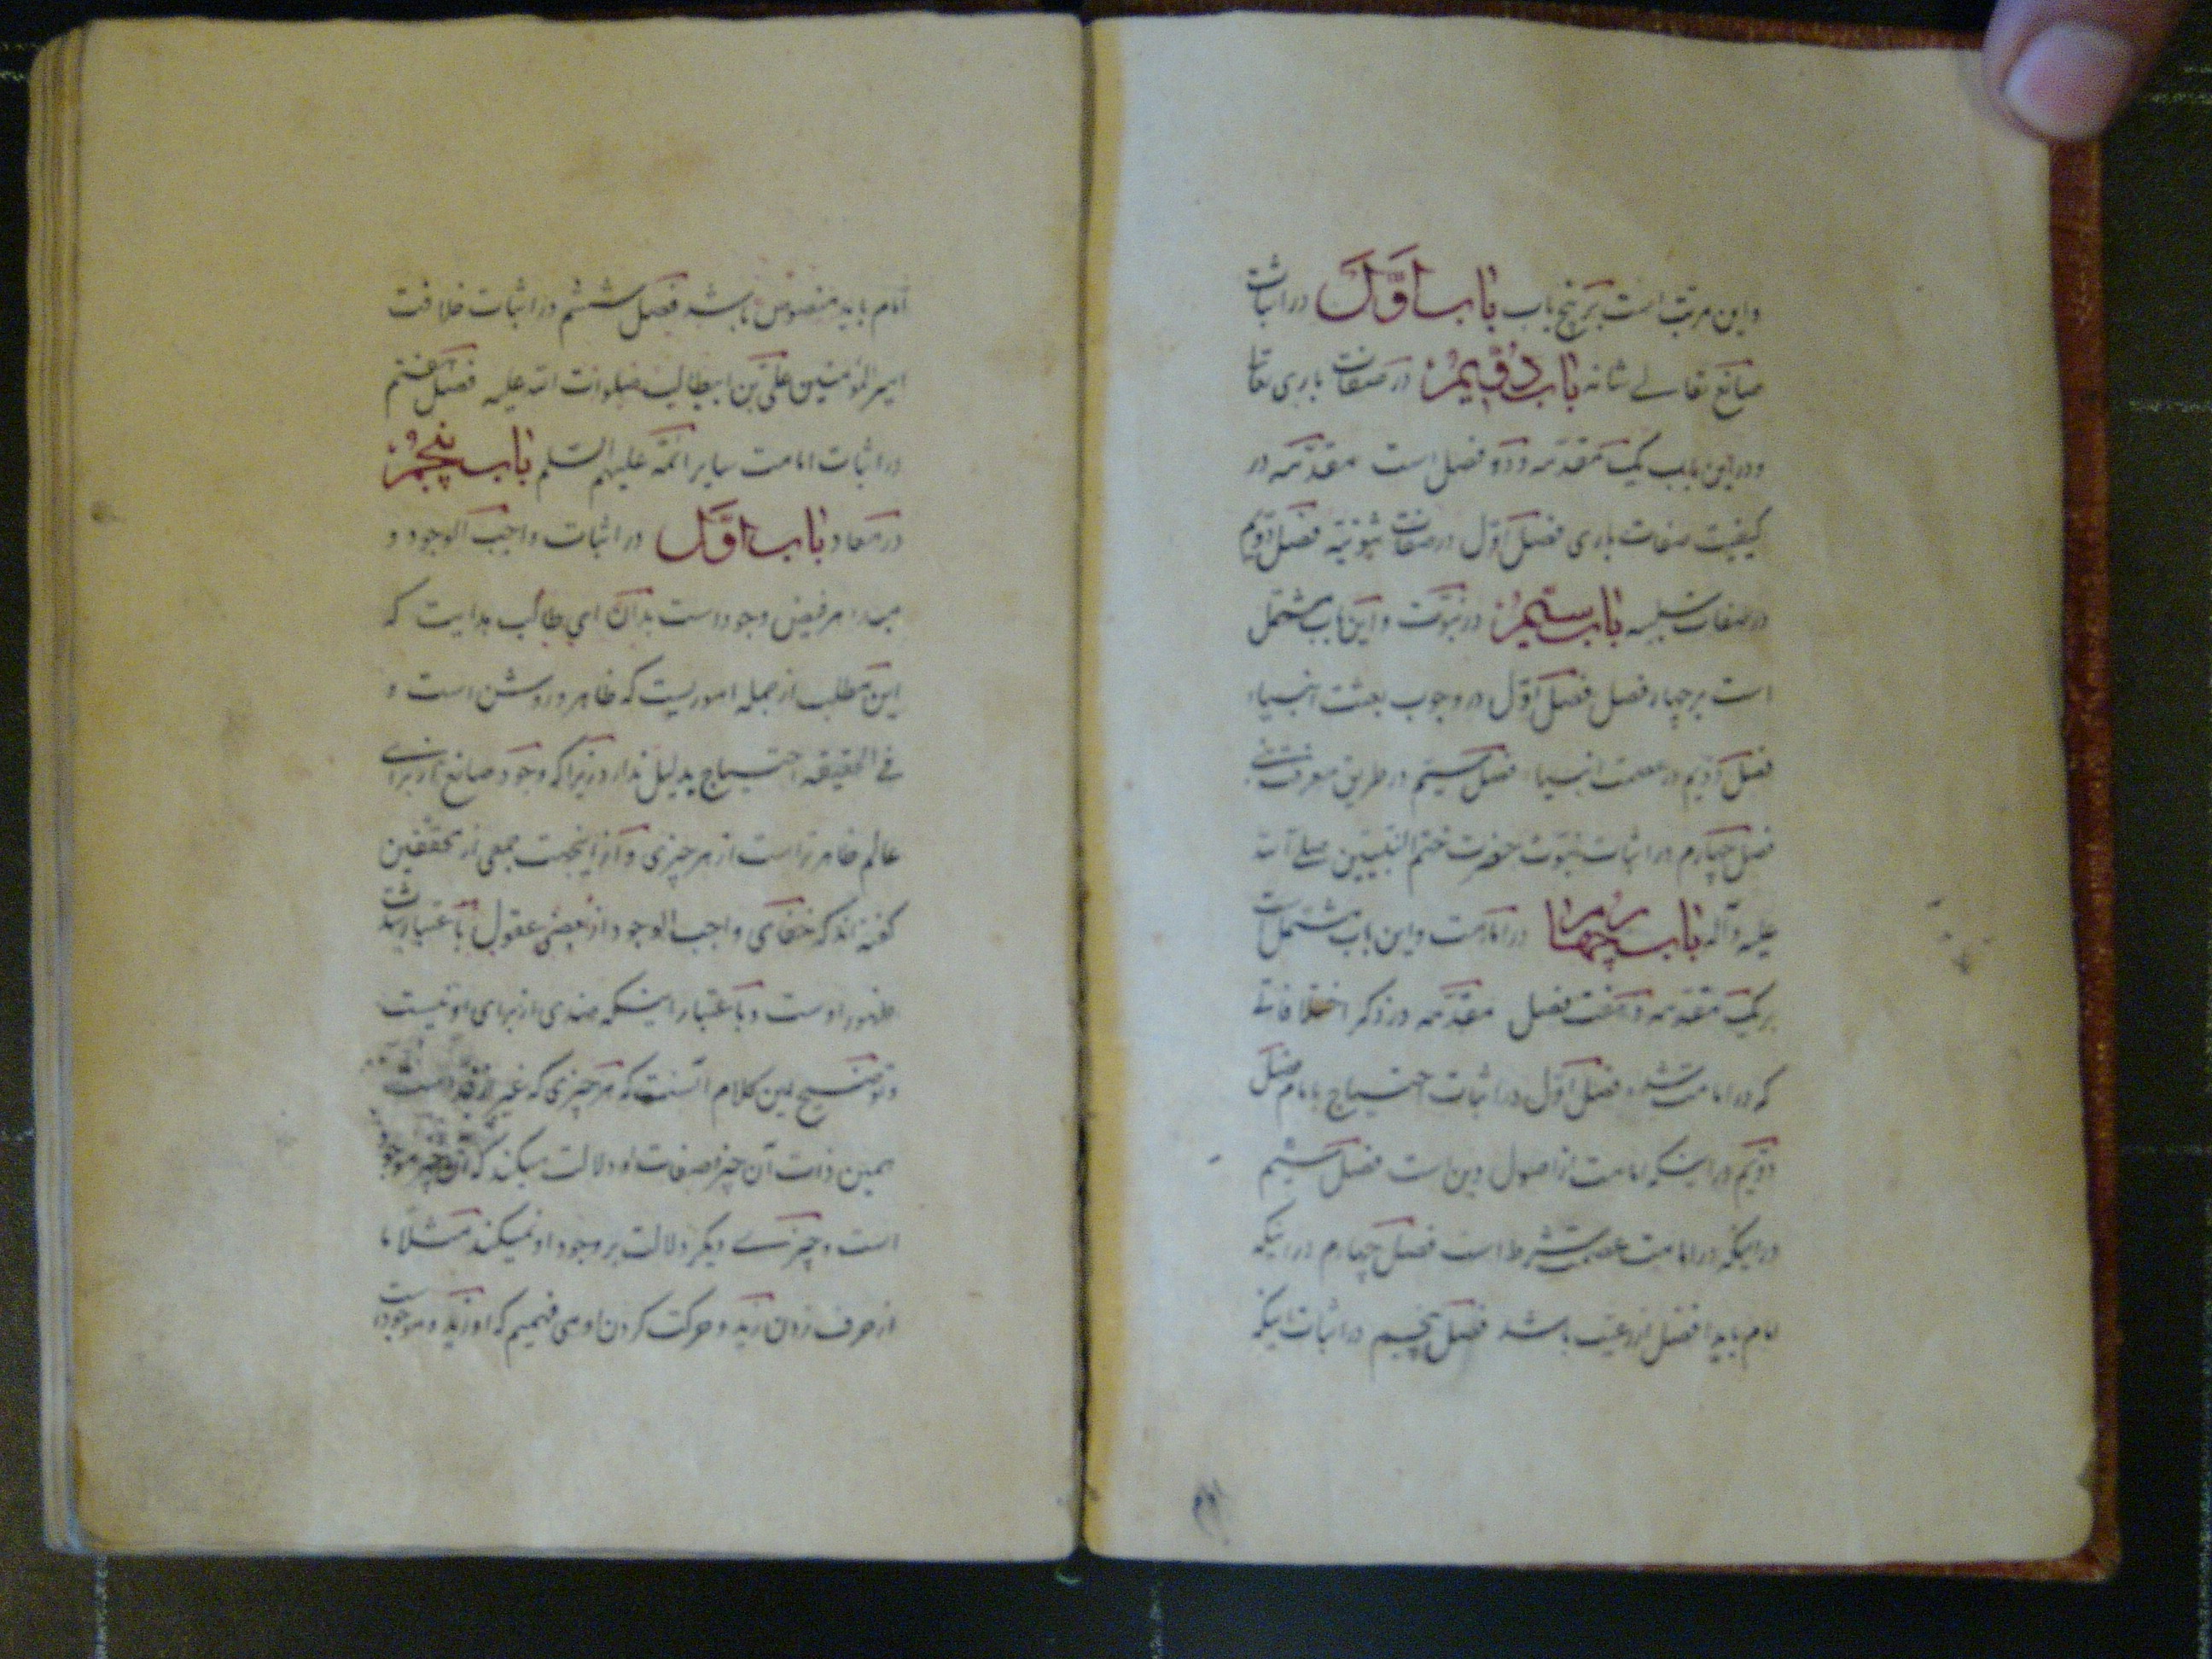 و این مرتب است بر پنج باب باب اوّل در اثبات
صانع تعالی شانه باب دویم در صفات باری تعا
و در این باب یک مقدّمه و دو فصل است مقدّمه در
کیفیت صفات باری فصل اوّل در صفات ثبوتیه فصل دویم
در صفات سلبیه باب سیم در نبوّت و این باب مشتمل
است بر چهار فصل فصل اوّل در وجوب بعثت انبیاء
فصل دویم در عصمت انبیاء فصل سیم در طریق معرفت نبی
فصل چهارم در اثبات نبوّت حضرت ختم النبیین صلی الله
علیه و آله باب چهارم در امامت و این باب مشتمل است
بر یک مقدّمه و هفت فصل مقدّمه در ذکر اختلافاتی
که در امامت شده فصل اوّل در اثبات احتیاج بامام فصل
دویم در اینکه امامت از اصول دین است فصل سیم
در اینکه در امامت عصمت شرط است فصل چهارم در اینکه
امام باید افضل از رعیت باشد فصل پنجم در اثبات اینکه
امام
امام باید منصوص باشد فصل ششم در اثبات خلافت
امیر المؤمنین علی بن ابیطالب صلوات الله علیه فصل هفتم
در اثبات امامت سایر ائمّه علیهم السّلم باب پنجم
در معاد باب اوّل در اثبات واجب الوجود و
مبداء هر فیض وجود است بدان ای طالب هدایت که
این مطلب از جمله اموریست که ظاهر و روشن است و
فی الحقیقه احتیاج بدلیل ندارد زیرا که وجود صانع از برای
عالم ظاهرتر است از هر چیزی و از اینجهت جمعی از محققین
گفته‌اند که خفای واجب الوجود از بعضی عقول باعتبار شدت
ظهور اوست و باعتبار اینکه ضدی از برای او نیست
و توضیح این کلام آنست که هر چیزی که غیر از است
همین ذات آن چیز و صفات او دلالت میکند که آن چیز موجود
است و چیزی دیگر دلالت بر وجود او نمیکند مثلا ما
از حرف زدن زید و حرکت کردن او می فهمیم که او زنده و موجود است